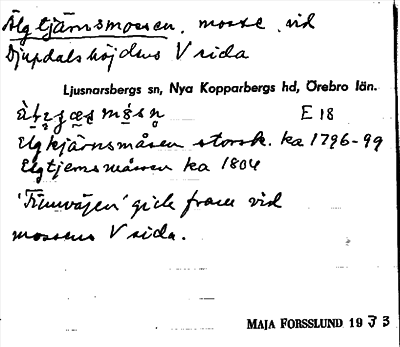 Älgtjärnsmossen, mosse vid
Djupdalshöjdens V sida
Ljusnarsbergs sn, Nya Kopparbergs hd, Örebro län.
E 18
Elgkjärnsmåsen storsk. ka 1796-99
Elgtjernsmåssen ka 1804
'Timvägen' gick fram vid
mossens V sida.
MAJA FORSSLUND 1933